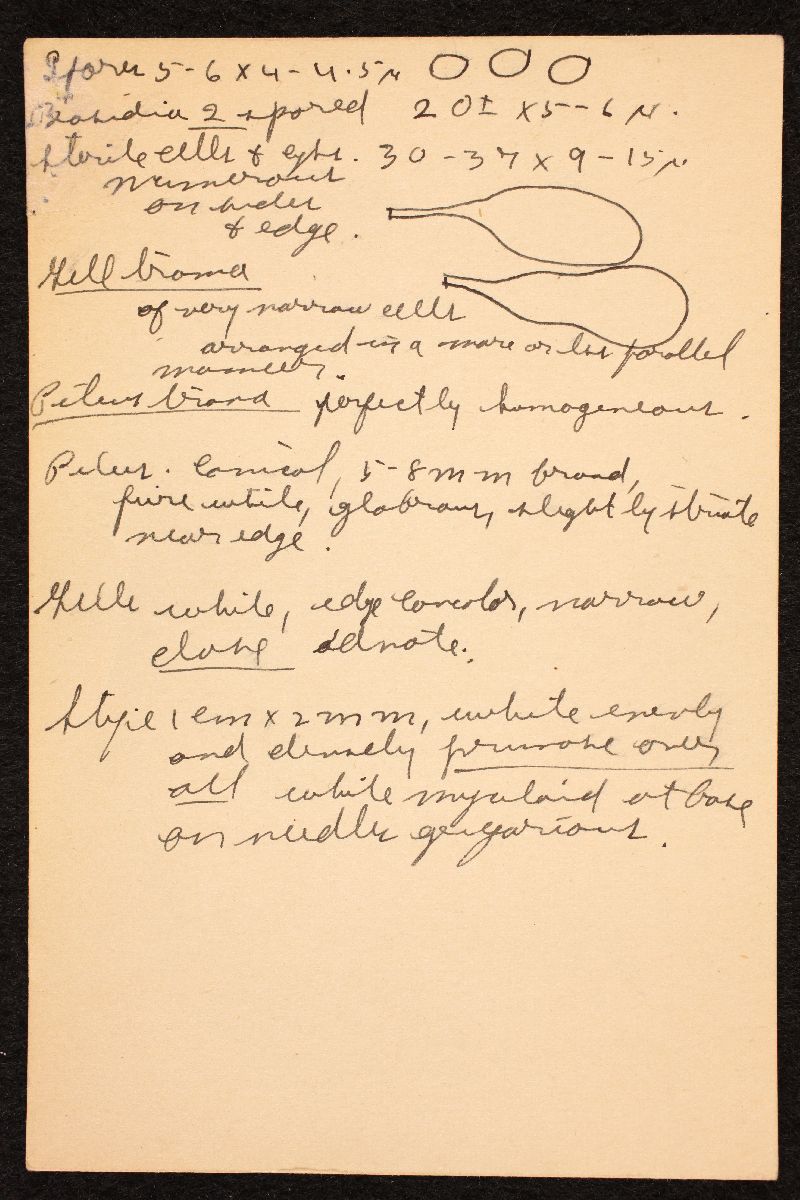 Spores 5-6 x 4-4.5 µ
Basidia 2 spored 20± x 5-6 µ.
Sterile cells & cyst. 30-37 x 9-15 µ
numerous
on sides
& edge.
Gill trama
of very narrow cells
arranged in a more or less parallel
manner.
Pileus trama perfectly homogeneous.
Pileus. Conical, 5-8 mm broad,
pure white, glabrous, slightly striate
near edge.
Gills white, edge concolor, narrow,
close adnate.
Stipe 1 cm x 2 mm, white evenly
and densely pruinose over
all white myceloid at base
on needles gregarious.